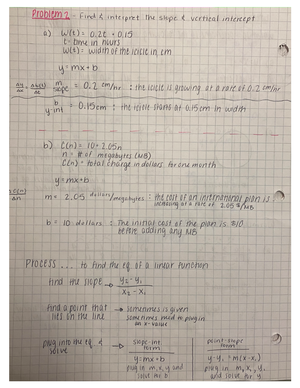 Problem 2 - Find & interpret the slope & vertical intercept
a) W(t) = 0.2t + 0.15
t = time in hours
W(t) = width of the icicle in cm
y = mx + b
m slope = 0.2 cm/hr : the icicle is growing at a rate of 0.2 cm/hr
b y-int = 0.15cm : the icicle starts at 0.15cm in width
b) C(n) = 10 + 2.05n
n = # of megabytes (MB)
C(n) = total charge in dollars for one month
y = mx + b
m = 2.05 dollars/megabytes : the cost of an international plan is
increasing at a rate of 2.05 $/MB
b = 10 dollars : The initial cost of the plan is $10
before adding any MB
PROCESS ... to find the eq of a linear function
find the slope → y₂ - y₁
x₂ - x₁
find a point that → sometimes is given
lies on the line sometimes need to plug in
an x-value
plug into the eq. & → slope int form
solve
y = mx + b
plug in m, x, y and
solve for b
point-slope form
y - y₁ = m(x - x₁)
plug in m, x₁, y₁
and solve for y